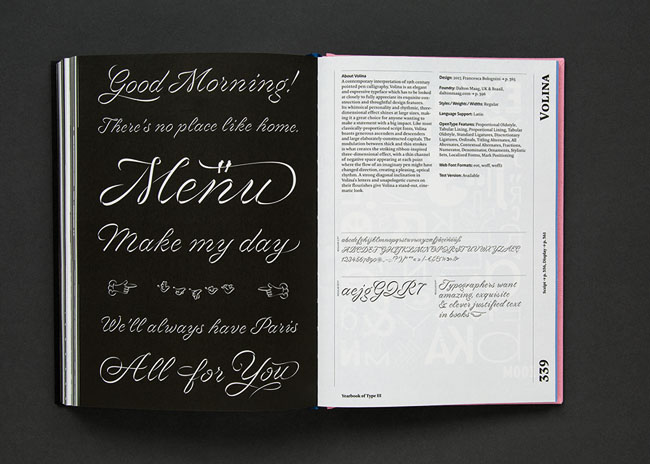 Good Morning!
There's no place like home.
Menu
Make my day
We'll always have Paris
All for You
About Volina
A contemporary interpretation of 19th century
pointed pen calligraphy, Volina is an elegant
and expressive typeface which has to be looked
at closely to fully appreciate its exquisite con-
struction and thoughtful design features.
Its whimsical personality and rhythmic, three-
dimensional effect shines at large sizes, mak-
ing it a great choice for anyone wanting to
make a statement with a big impact. Like most
classically-proportioned script fonts, Volina
boasts generous ascenders and descenders
and large elaborately-constructed capitals. The
modulation between thick and thin strokes
is what creates the striking ribbon-inspired
three-dimensional effect, with a thin channel
of negative space appearing at each point
where the flow of an imaginary pen might have
changed direction, creating a pleasing, optical
rhythm. A strong diagonal inclination in
Volina's letters and unapologetic curves on
their flourishes give Volina a stand-out, cine-
matic look.
Design: 2017, Francesca Bolognini → p. 365
Foundry: Dalton Maag, UK & Brazil,
daltonmaag.com → p. 396
Styles / Weights / Widths: Regular
Language Support: Latin
OpenType Features: Proportional Oldstyle,
Tabular Lining, Proportional Lining, Tabular
Oldstyle, Standard Ligatures, Discretionary
Ligatures, Ordinals, Titling Alternates, All
Alternates, Contextual Alternates, Fractions,
Numerator, Denominator, Ornaments, Stylistic
Sets, Localised Forms, Mark Positioning
Web Font Formats: eot, woff, woff2
Test Version: Available
aejgGQR7
Typographers want
amazing, exquisite
& clever justified text
in books
Yearbook of Type III
Volina
Script → p. 350, Display → p. 361
339